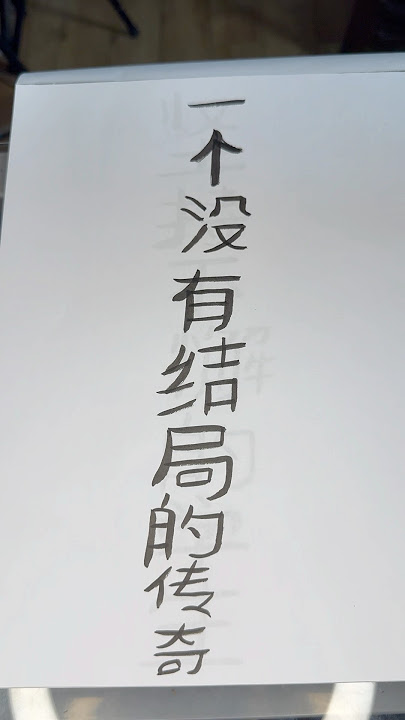 一个没有结局的传奇